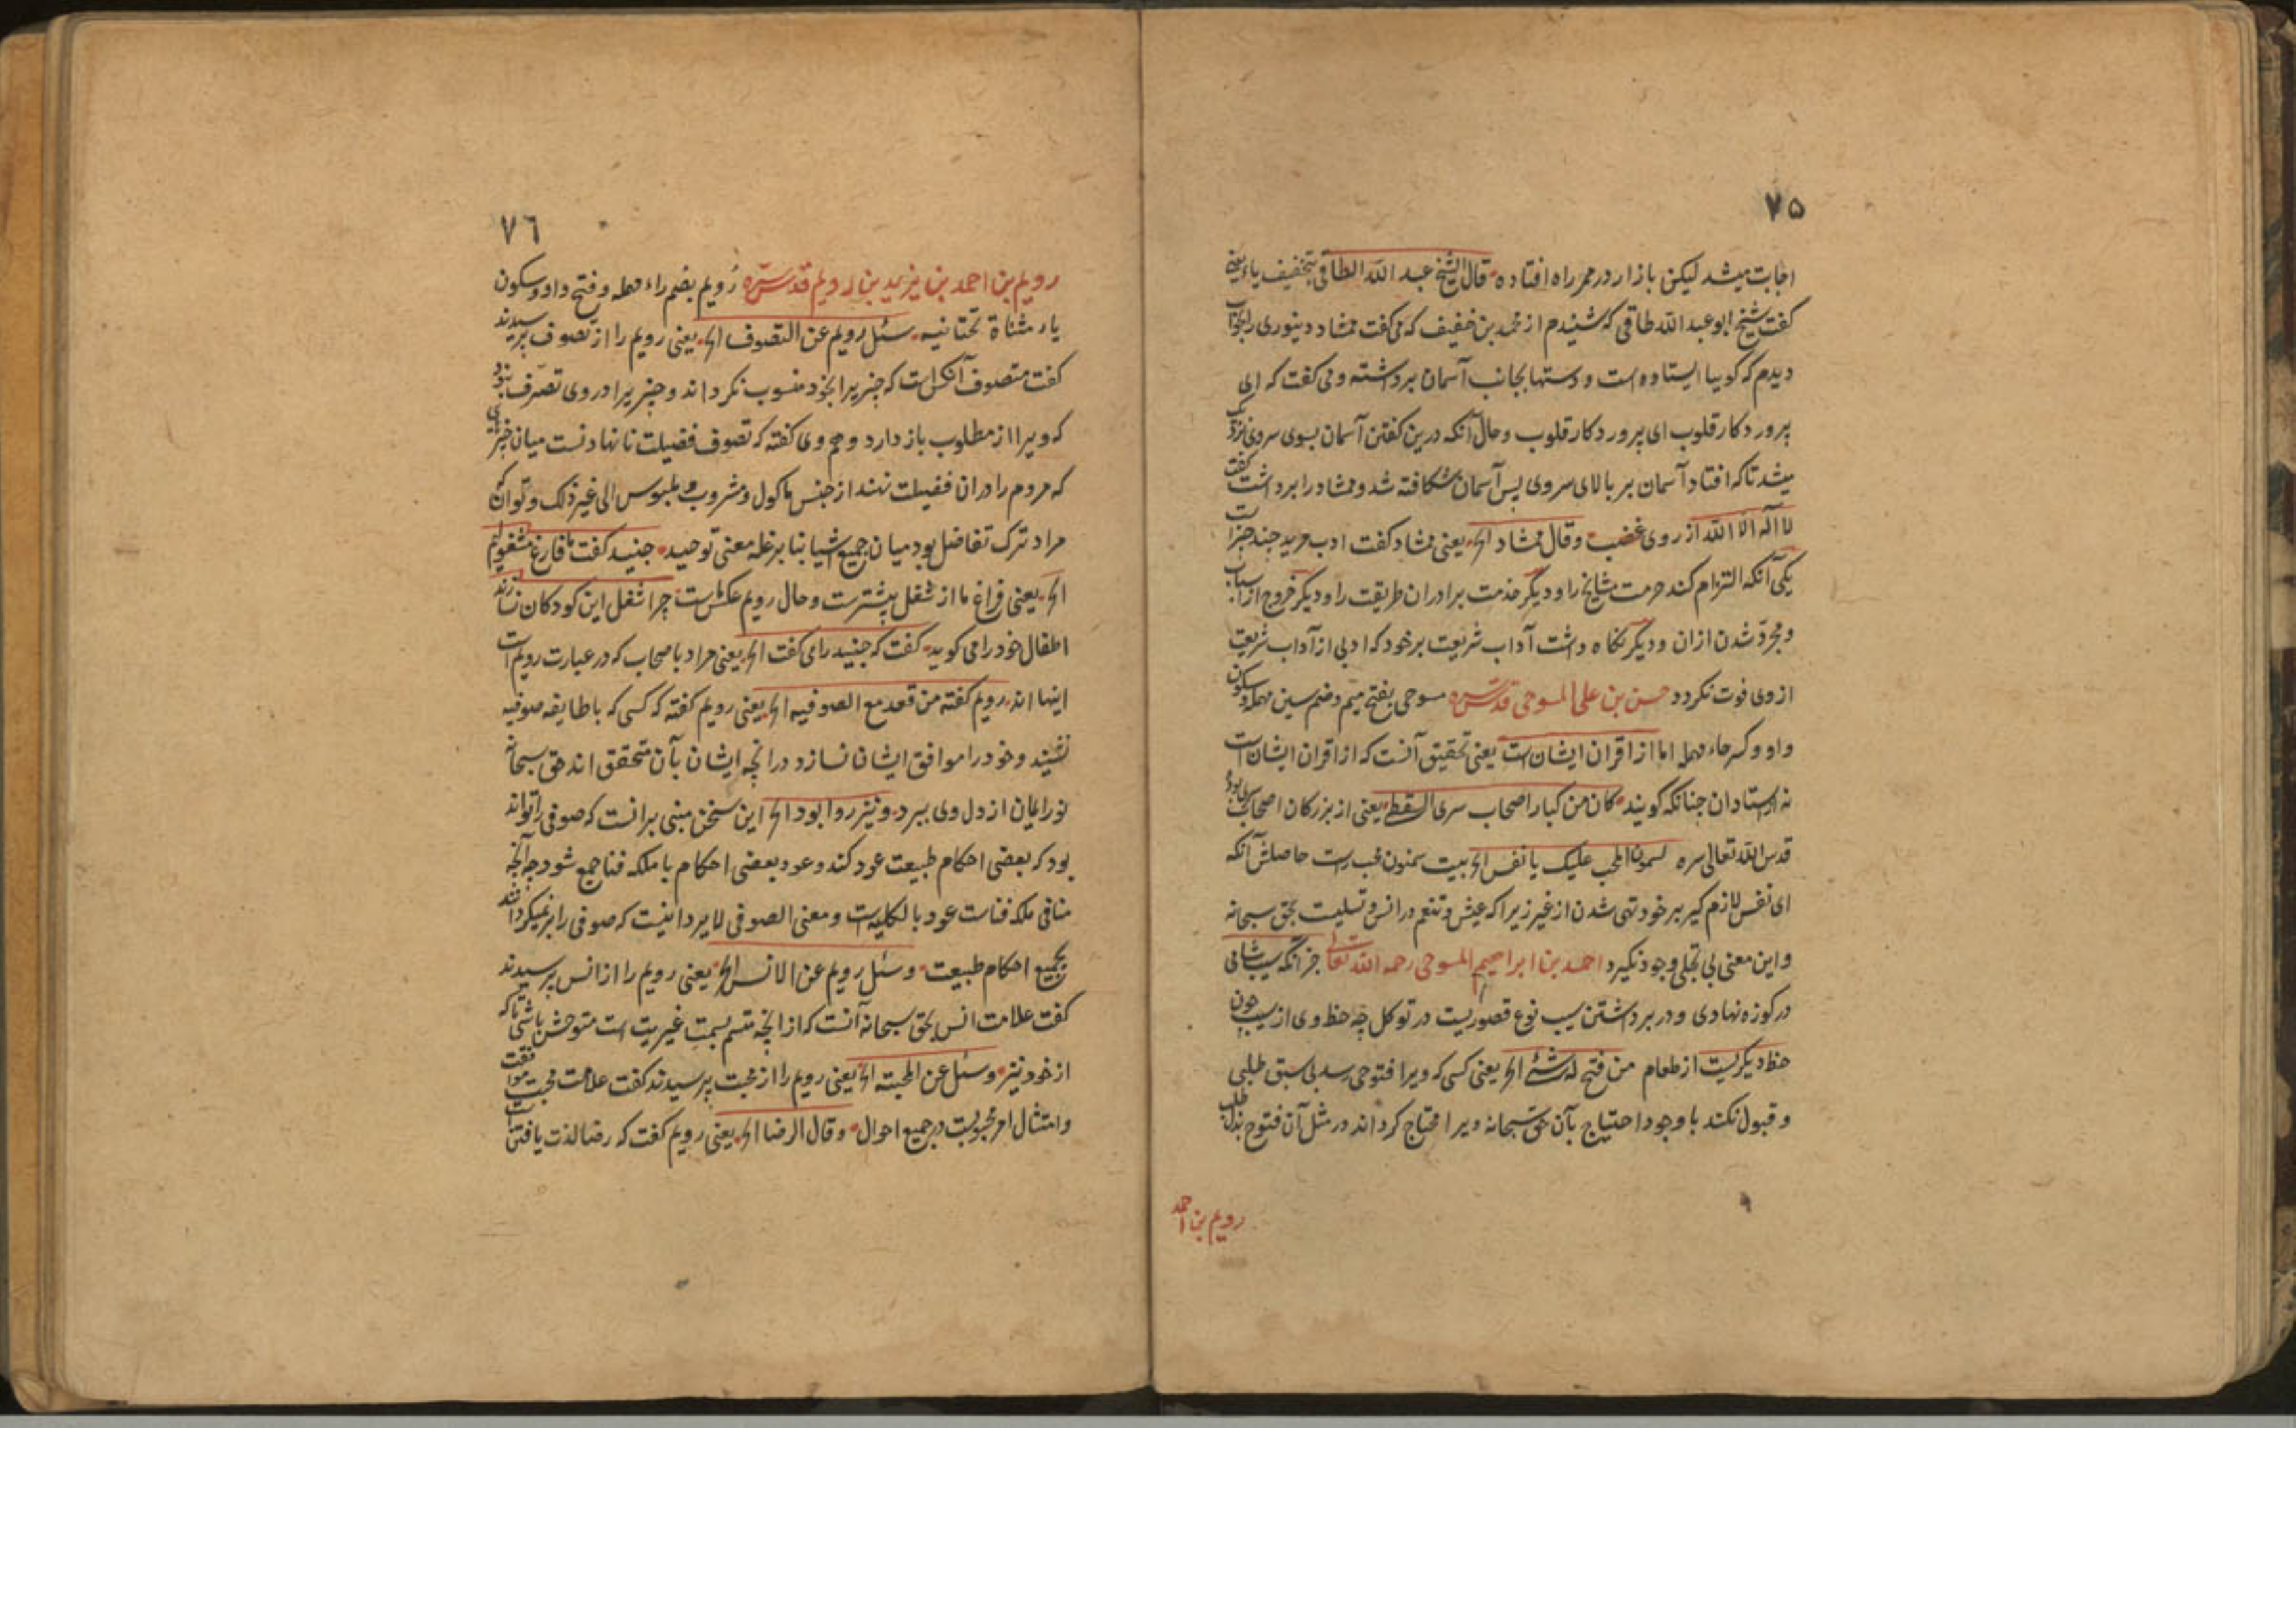 ۷۵
اجابت میشد لیکن بازار در ممر راه افتاده قال الشیخ عبد الله الطاقی بتخفیف یاء یعنی
کفت شیخ ابو عبد الله طاقی که شنیدم از محمد بن خفیف که می کفت ممشاد دینوری را بخواب
دیدم که کوییا ایستاده است و دستها بجانب آسمان برداشته و می کفت که ای
پروردکار قلوب ای پروردکار قلوب و حال آنکه درین کفتن آسمان بسوی سر وی نزدیک
میشد تا که افتاد آسمان بر بالای سر وی پس آسمان شکافته شد و ممشاد را برداشت کفت
لا اله الا الله از روی غضب وقال ممشاد الخ یعنی ممشاد کفت ادب مرید چند چیز است
یکی آنکه التزام کند حرمت مشایخ را و دیگر خدمت برادران طریقت را و دیگر خروج از اسباب
و مجرد شدن ازان و دیگر نکاه داشت آداب شریعت بر خود که ادبی از آداب شریعت
از وی فوت نکردد حسن بن علی المسوحی قدس سره مسوحی بفتح میم و ضم سین مهمله و سکون
واو و کسر حاء مهمله اما از اقران ایشان است یعنی تحقیق آنست که از اقران ایشان است
نه از استادان چنانکه کویند کان من کبار اصحاب سری السقطی یعنی از بزرکان اصحاب سری بود
قدس الله تعالی سره علیک یا نفس الخ بیت سمنون محب راست حاصلش آنکه
ای نفس لازم کیر بر خود تهی شدن از غیر زیرا که عیش و تنعم در انس و تسلیت بحق سبحانه
و این معنی بی تخلی وجود نکیرد احمد بن ابراهیم المسوحی رحمه الله تعالی جز آنکه سیب شافی
در کوزه نهادی و در برداشتن سیب نوع قصوریست در توکل چه حظ وی از سیب چون
حظ دیکریست از طعام من فتح له شئ الخ یعنی کسی که ویرا فتوحی رسد بی سبق طلبی
و قبول نکند با وجود احتیاج بآن حق سبحانه ویرا محتاج کرداند در مثل آن فتوح بذل طلب
رویم بن احمد
۷٦
رویم بن احمد بن یزید بن رویم قدس سره رُویم بضم راء مهمله و فتح واو و سکون
یاء مثناة تحتانیه سئل رویم عن التصوف الخ یعنی رویم را از تصوف پرسیدند
کفت متصوف آنکس است که چیزیرا بخود منسوب نکرداند و چیزیرا در وی تصرف نبود
که ویرا از مطلوب باز دارد و هم وی کفته که تصوف فضیلت نانهادنست میان چیزهای
که مردم را دران فضیلت نهند از جنس ماکول و مشروب و ملبوس الی غیر ذلک و تواند که
مراد ترک تفاضل بود میان جمیع اشیا بنا بر غلبه معنی توحید جنید کفت ما فارغ مشغولیم
الخ یعنی فراغ ما از شغل بیشترست و حال رویم عکس ماست چرا شغل این کودکان نسازند
اطفال خود را می کوید کفت که جنید را می کفت الخ یعنی مراد باصحاب که در عبارت رویم است
اینها اند رویم کفته من قعد مع الصوفیه الخ یعنی رویم کفته که کسی که با طایفه صوفیه
نشیند و خود را موافق ایشان نسازد در انچه ایشان بآن متحقق اند حق سبحانه
نور ایمان از دل وی ببرد و نیز روا بود الخ این سخن مبنی بر انست که صوفی را تواند
بود که بعضی احکام طبیعت عود کند و عود بعضی احکام با ملکه فنا جمع شود چه آنچه
منافی ملکه فناست عود بالکلیه است و معنی الصوفی لا یرد اینست که صوفی را بر نمیکردانند
بجمیع احکام طبیعت وسئل رویم عن الانس الخ یعنی رویم را از انس پرسیدند
کفت علامت انس بحق سبحانه آنست که از انچه متسم بسمت غیریت است متوحش باشی تا که
از خود نیز وسئل عن المحبته الخ یعنی رویم را از محبت پرسیدند کفت علامت محبت موافقت
و امتثال امر محبوبست در جمیع احوال وقال الرضا الخ یعنی رویم کفت که رضا لذت یافتن است